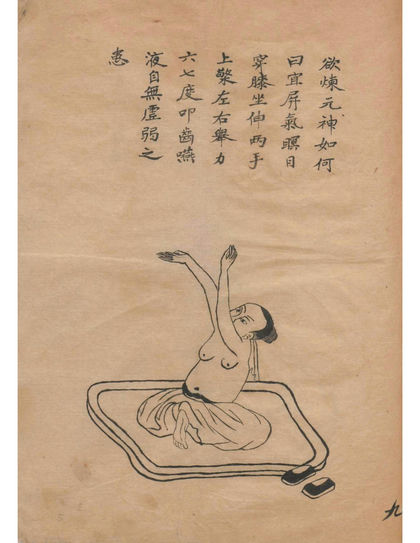 欲煉元神如何
曰宜屏氣瞑目
穿膝坐伸兩手
上擎左右舉力
六七度叩齒嚥
液自無虛弱之
患
九